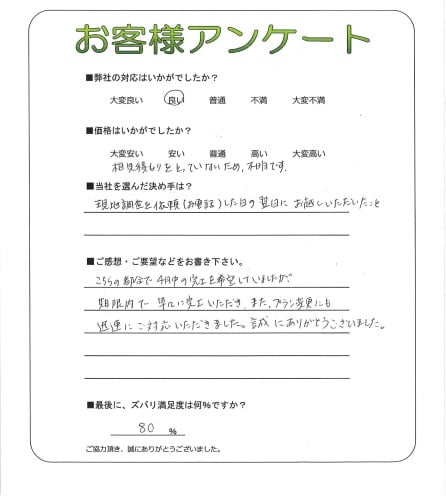 お客様アンケート
■弊社の対応はいかがでしたか？
大変良い 良い 普通 不満 大変不満
■価格はいかがでしたか？
大変安い 安い 普通 高い 大変高い
相見積もりをとっていないため、不明です.
■当社を選んだ決め手は？
現地調査を依頼(お電話)した日の翌日にお越しいただいたこと
■ご感想・ご要望などをお書き下さい。
こちらの都合で4月中の完工を希望していましたが
期限内で早々に完工いただき、また、プラン変更にも
迅速にご対応いただきました。誠にありがとうございました。
■最後に、ズバリ満足度は何%ですか？
80 %
ご協力頂き、誠にありがとうございました。